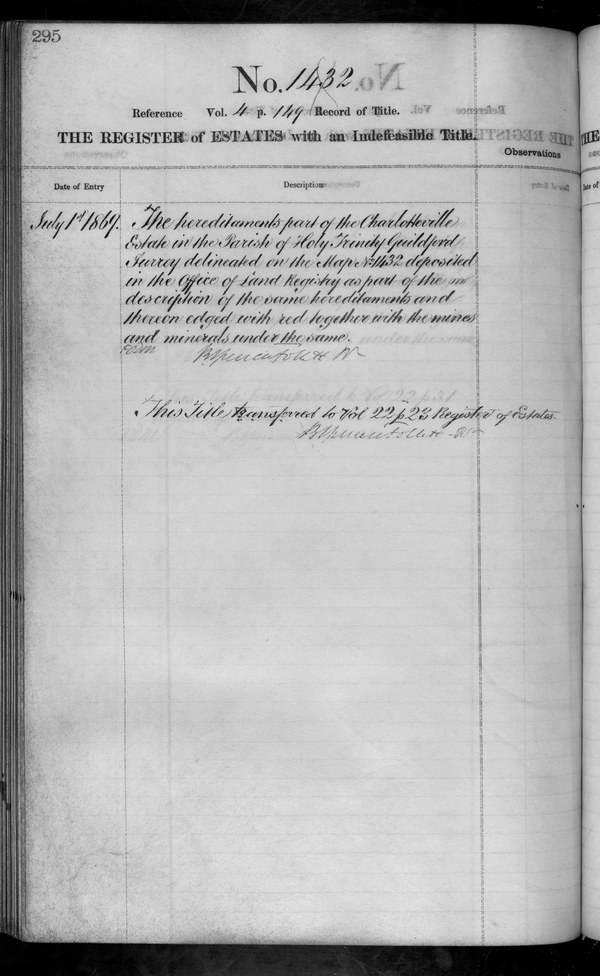 295
No. 1432
Reference Vol. 4 p. 149 Record of Title.
THE REGISTER of ESTATES with an Indefeasible Title.
Observations
Date of Entry Description
July 1st 1869. The hereditaments part of the Charlotteville
Estate in the Parish of Holy Trinity Guildford
Surrey delineated on the Map No 1432 deposited
in the Office of Land Registry as part of the
description of the same hereditaments and
thereon edged with red together with the mines
and minerals under the same.
This Title transferred to Vol 22 p 23 Register of Estates.